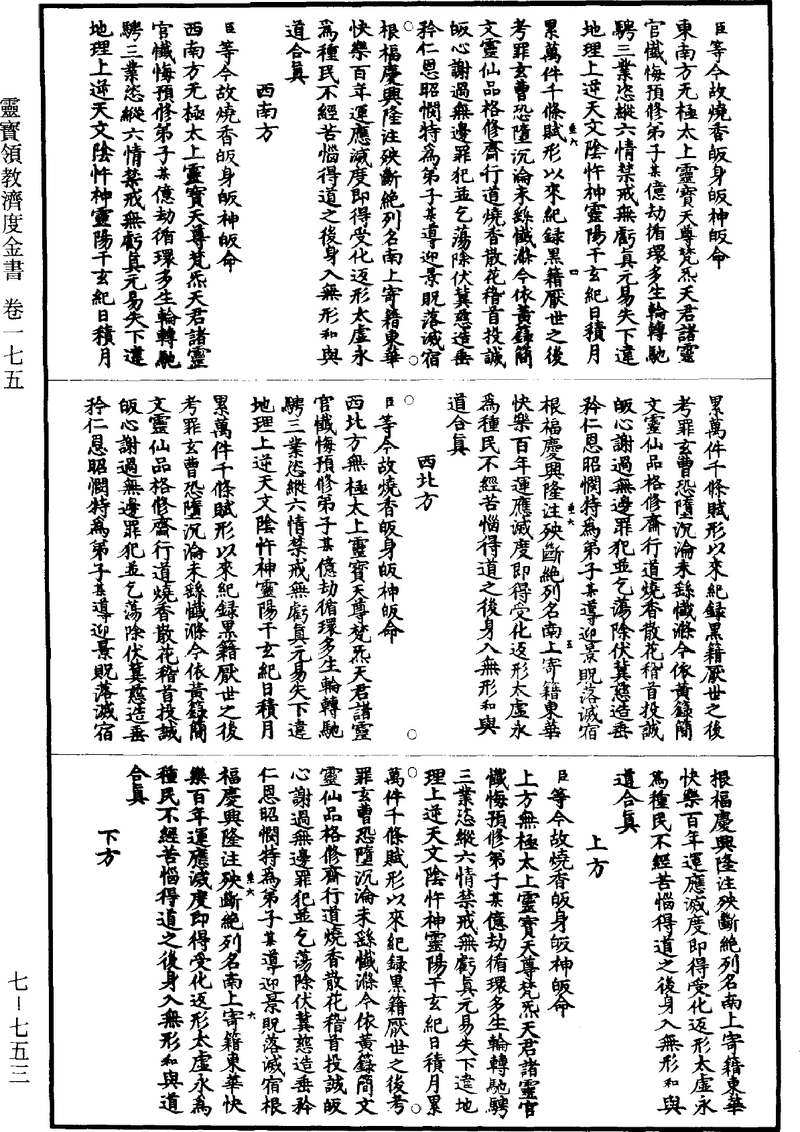 靈寶領教濟度金書 卷一七五
七－七五三
臣等今故燒香皈身皈神皈命
東南方无極太上靈寶天尊梵炁天君諸靈
官懺悔預修弟子某億劫循環多生輪轉馳
騁三業恣縱六情禁戒無虧真元易失下違
地理上逆天文陰忤神靈陽干玄紀日積月
累萬件千條賦形以來紀録黑籍厭世之後
考罪玄曹恐墮沉淪未繇懺滌今依黃籙簡
文靈仙品格修齋行道燒香散花稽首投誠
皈心謝過無邊罪犯並乞蕩除伏冀慈造垂
矜仁恩昭憫特為弟子某導迎景貺落滅宿
根福慶興隆注殃斷絕列名南上寄籍東華
快樂百年運應滅度即得受化返形太虛永
為種民不經苦惱得道之後身入無形和與
道合真
西南方
臣等今故燒香皈身皈神皈命
西南方无極太上靈寶天尊梵炁天君諸靈
官懺悔預修弟子某億劫循環多生輪轉馳
騁三業恣縱六情禁戒無虧真元易失下違
地理上逆天文陰忤神靈陽干玄紀日積月
累萬件千條賦形以來紀録黑籍厭世之後
考罪玄曹恐墮沉淪未繇懺滌今依黃籙簡
文靈仙品格修齋行道燒香散花稽首投誠
皈心謝過無邊罪犯並乞蕩除伏冀慈造垂
矜仁恩昭憫特為弟子某導迎景貺落滅宿
根福慶興隆注殃斷絕列名南上寄籍東華
快樂百年運應滅度即得受化返形太虛永
為種民不經苦惱得道之後身入無形和與
道合真
西北方
臣等今故燒香皈身皈神皈命
西北方無極太上靈寶天尊梵炁天君諸靈
官懺悔預修弟子某億劫循環多生輪轉馳
騁三業恣縱六情禁戒無虧真元易失下違
地理上逆天文陰忤神靈陽干玄紀日積月
累萬件千條賦形以來紀録黑籍厭世之後
考罪玄曹恐墮沉淪未繇懺滌今依黃籙簡
文靈仙品格修齋行道燒香散花稽首投誠
皈心謝過無邊罪犯並乞蕩除伏冀慈造垂
矜仁恩昭憫特為弟子某導迎景貺落滅宿
根福慶興隆注殃斷絕列名南上寄籍東華
快樂百年運應滅度即得受化返形太虛永
為種民不經苦惱得道之後身入無形和與
道合真
上方
臣等今故燒香皈身皈神皈命
上方無極太上靈寶天尊梵炁天君諸靈官
懺悔預修弟子某億劫循環多生輪轉馳騁
三業恣縱六情禁戒無虧真元易失下違地
理上逆天文陰忤神靈陽干玄紀日積月累
萬件千條賦形以來紀録黑籍厭世之後考
罪玄曹恐墮沉淪未繇懺滌今依黃籙簡文
靈仙品格修齋行道燒香散花稽首投誠皈
心謝過無邊罪犯並乞蕩除伏冀慈造垂矜
仁恩昭憫特為弟子某導迎景貺落滅宿根
福慶興隆注殃斷絕列名南上寄籍東華快
樂百年運應滅度即得受化返形太虛永為
種民不經苦惱得道之後身入無形和與道
合真
下方